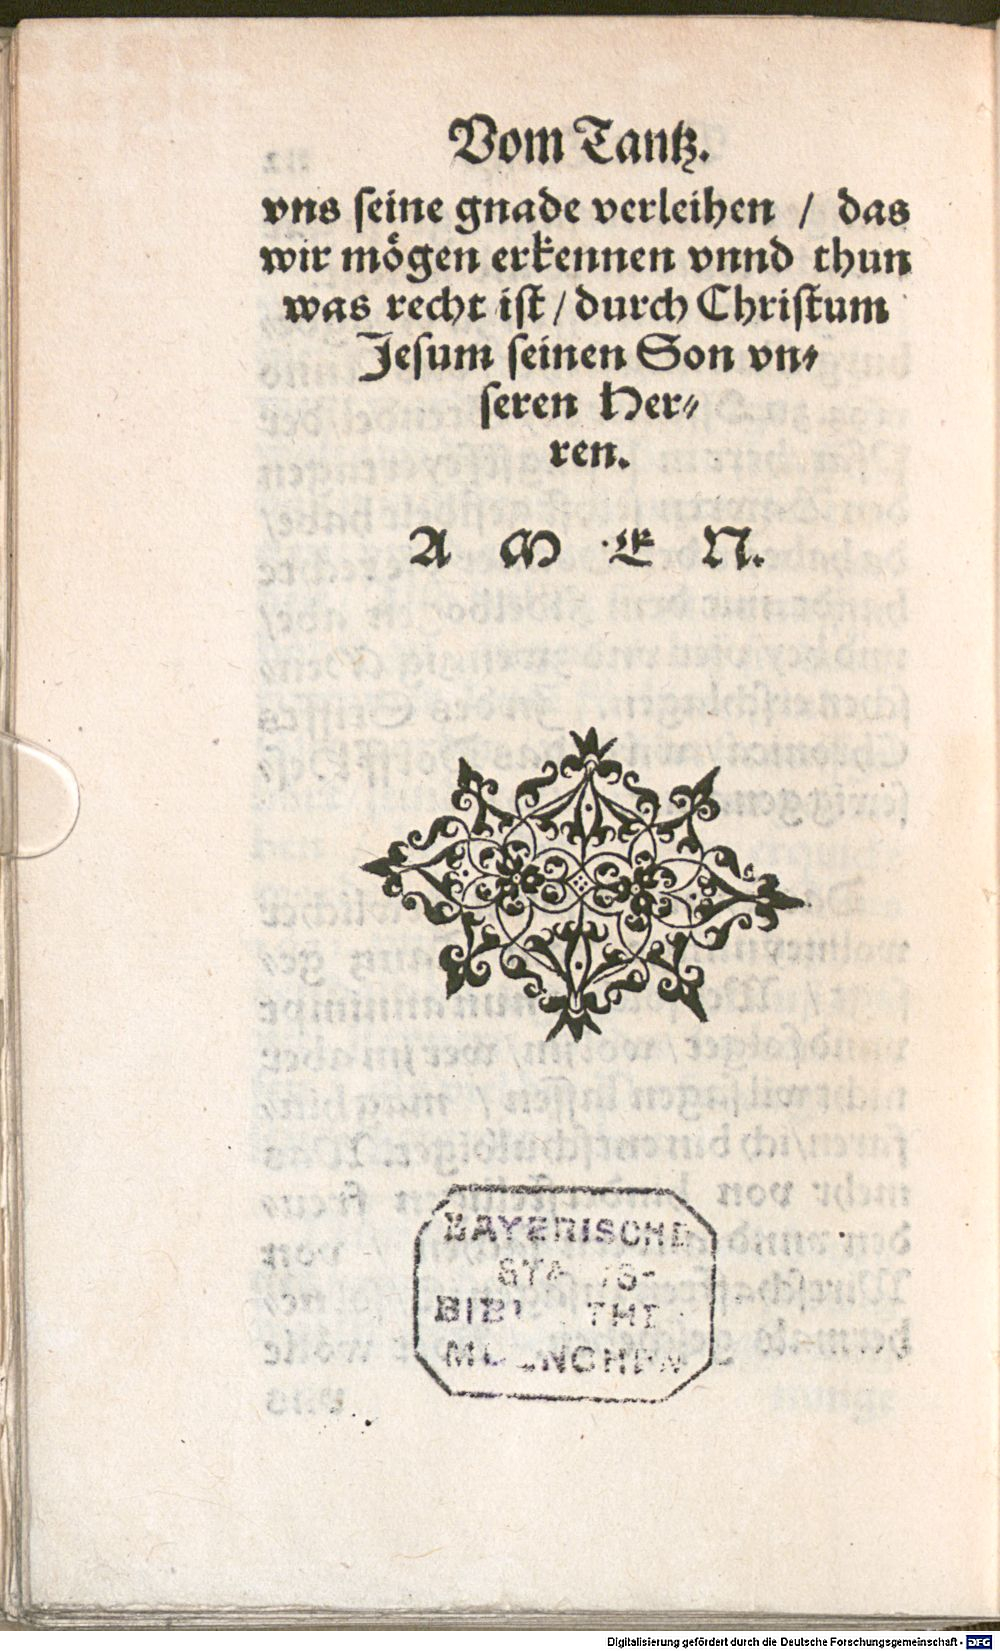 Vom Tantz.
vns seine gnade verleihen / das
wir mögen erkennen vnnd thun
was recht ist / durch Christum
Jesum seinen Son vn⸗
seren Her⸗
ren.
A M E N.
BAYERISCHE
STAATS-
BIBLIOTHEK
MUENCHEN
Digitalisierung gefördert durch die Deutsche Forschungsgemeinschaft - DFG